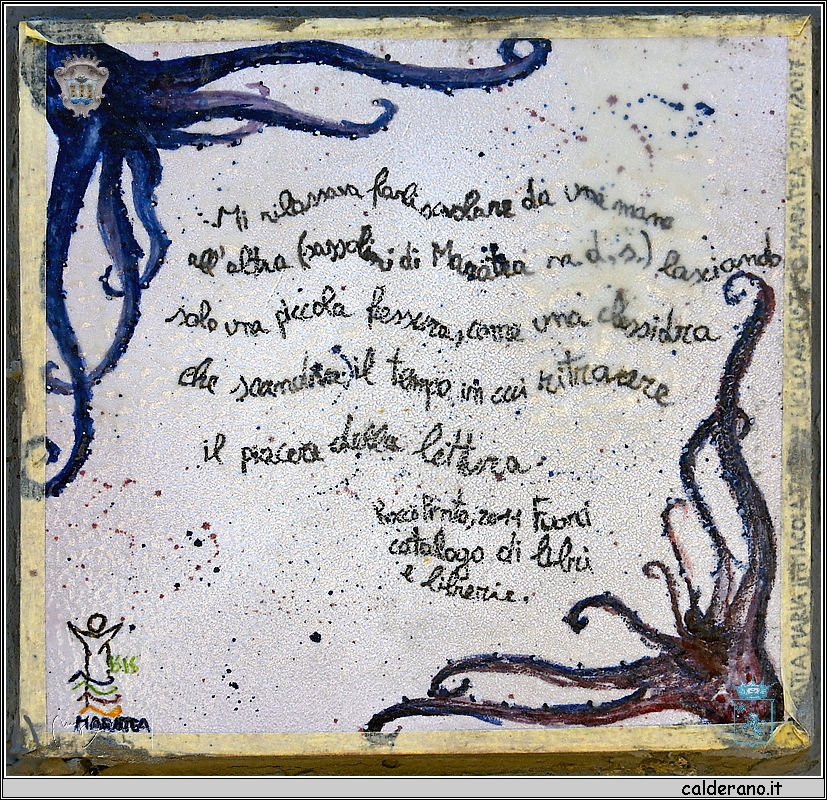 Mi rilassava farli scivolare da una mano
all'altra (sassolini di Maratea n.d.s.) lasciando
solo una piccola fessura, come una clessidra
che scandiva il tempo in cui ritrovare
il piacere della lettura.
Rocco Pinto, 2011 Fuori
catalogo di libri
e librerie.
MARATEA
MARIA IMMACOLATA MARATEA 2016/2017
calderano.it